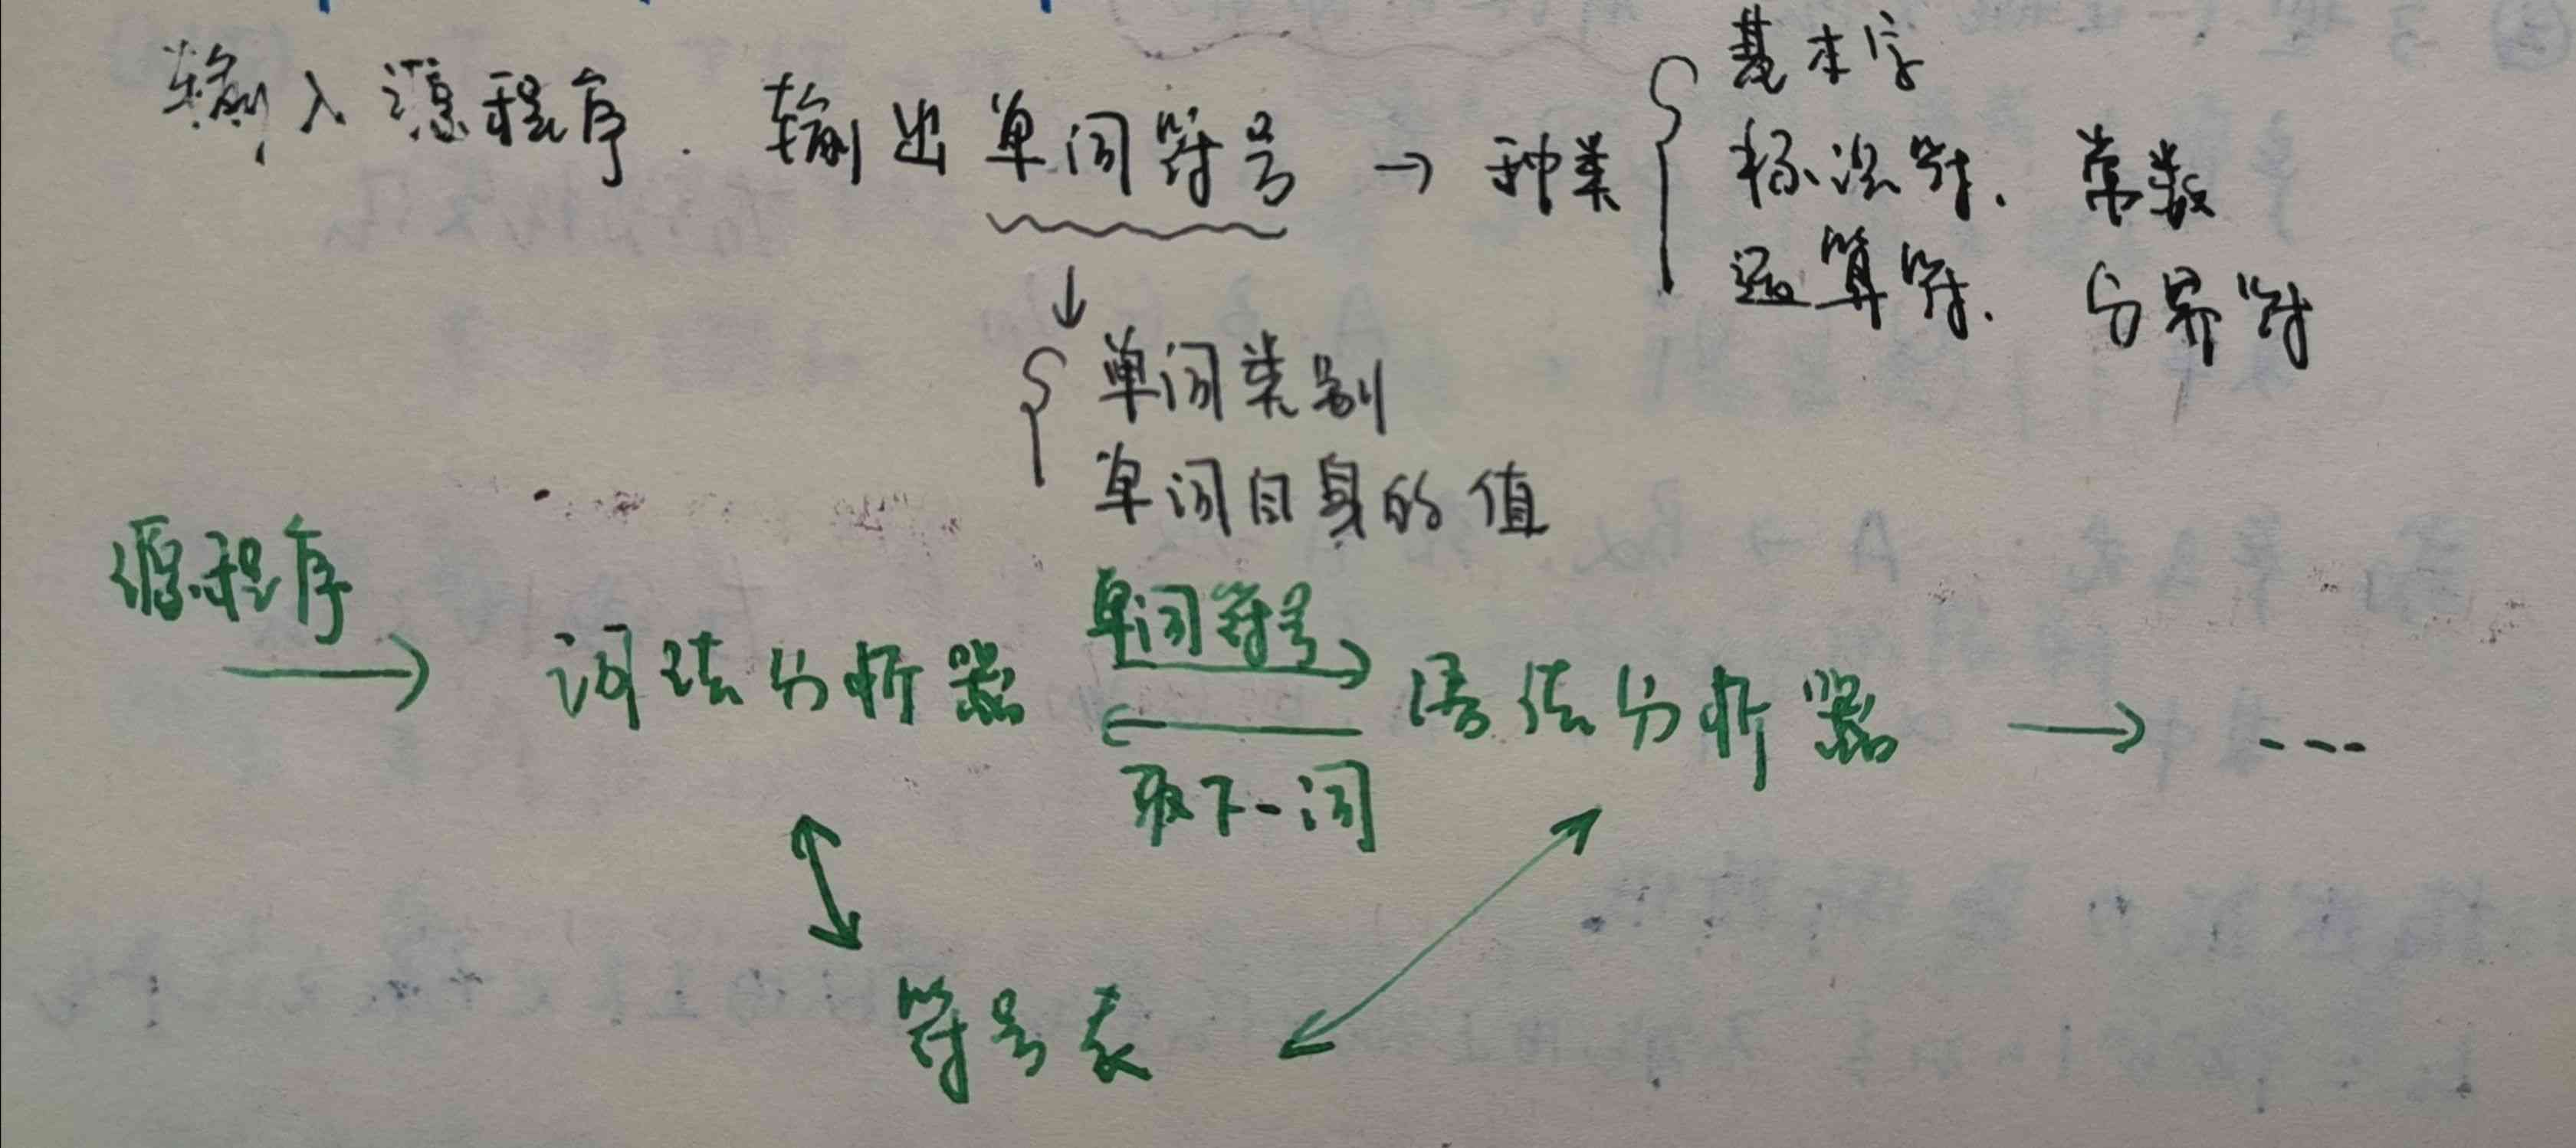 输入源程序. 输出单词符号 → 种类
基本字
标识符. 常数
运算符. 分界符
↓
单词类别
单词自身的值
源程序
→ 词法分析器
单词符号
取下一词
语法分析器 → ----
符号表